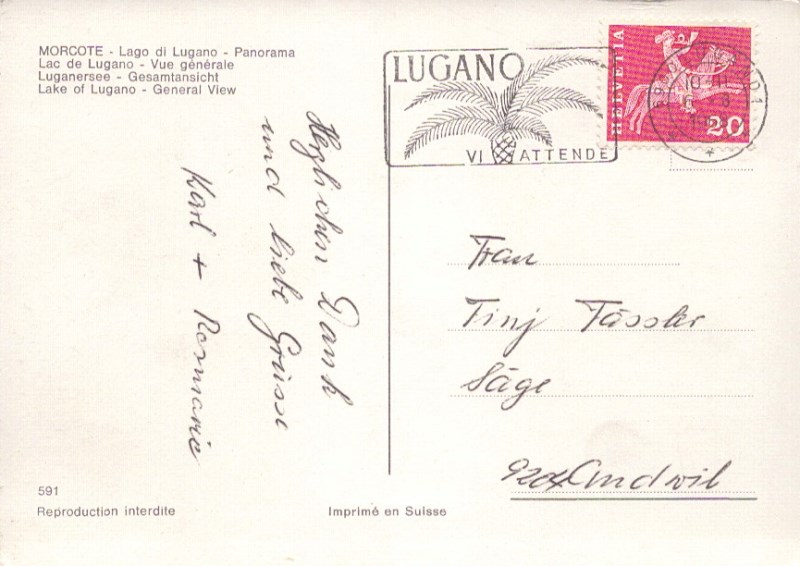 MORCOTE - Lago di Lugano - Panorama
Lac de Lugano - Vue générale
Luganersee - Gesamtansicht
Lake of Lugano - General View
Herzlichen Dank
und liebe Grüsse
Karl + Rosmarie
591
Reproduction interdite
Imprimé en Suisse
LUGANO
VI ATTENDE
HELVETIA
20
Frau
Tinj Fässler
Säge
9204 Andwil